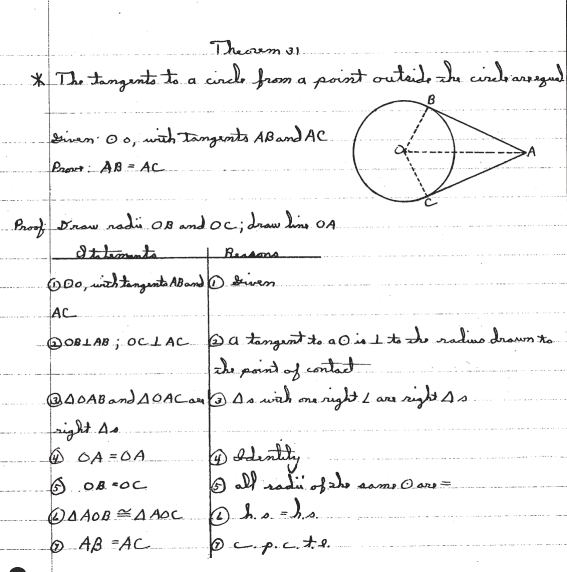 Theorem 31
* The tangents to a circle from a point outside the circle are equal
B
Given: ⊙O, with tangents AB and AC
O
A
Prove: AB = AC
C
Proof: Draw radii OB and OC; draw line OA
Statements Reasons
① ⊙O, with tangents AB and ① Given
AC
② OB⊥AB ; OC⊥AC ② A tangent to a ⊙ is ⊥ to the radius drawn to
the point of contact
③ △OAB and △OAC are ③ △s with one right ∠ are right △s
right △s
④ OA = OA ④ Identity
⑤ OB = OC ⑤ all radii of the same ⊙ are =
⑥ △AOB ≅ △AOC ⑥ h.s. = h.s.
⑦ AB = AC ⑦ c.p.c.t.e.